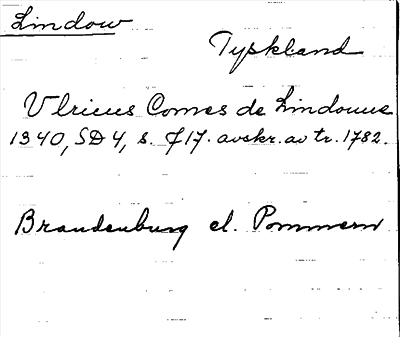 Lindow
Tyskland
Ulricus Comes de Lindouwe
1340, SD 4, s. 717. avskr. av tr. 1782.
Brandenburg el. Pommern